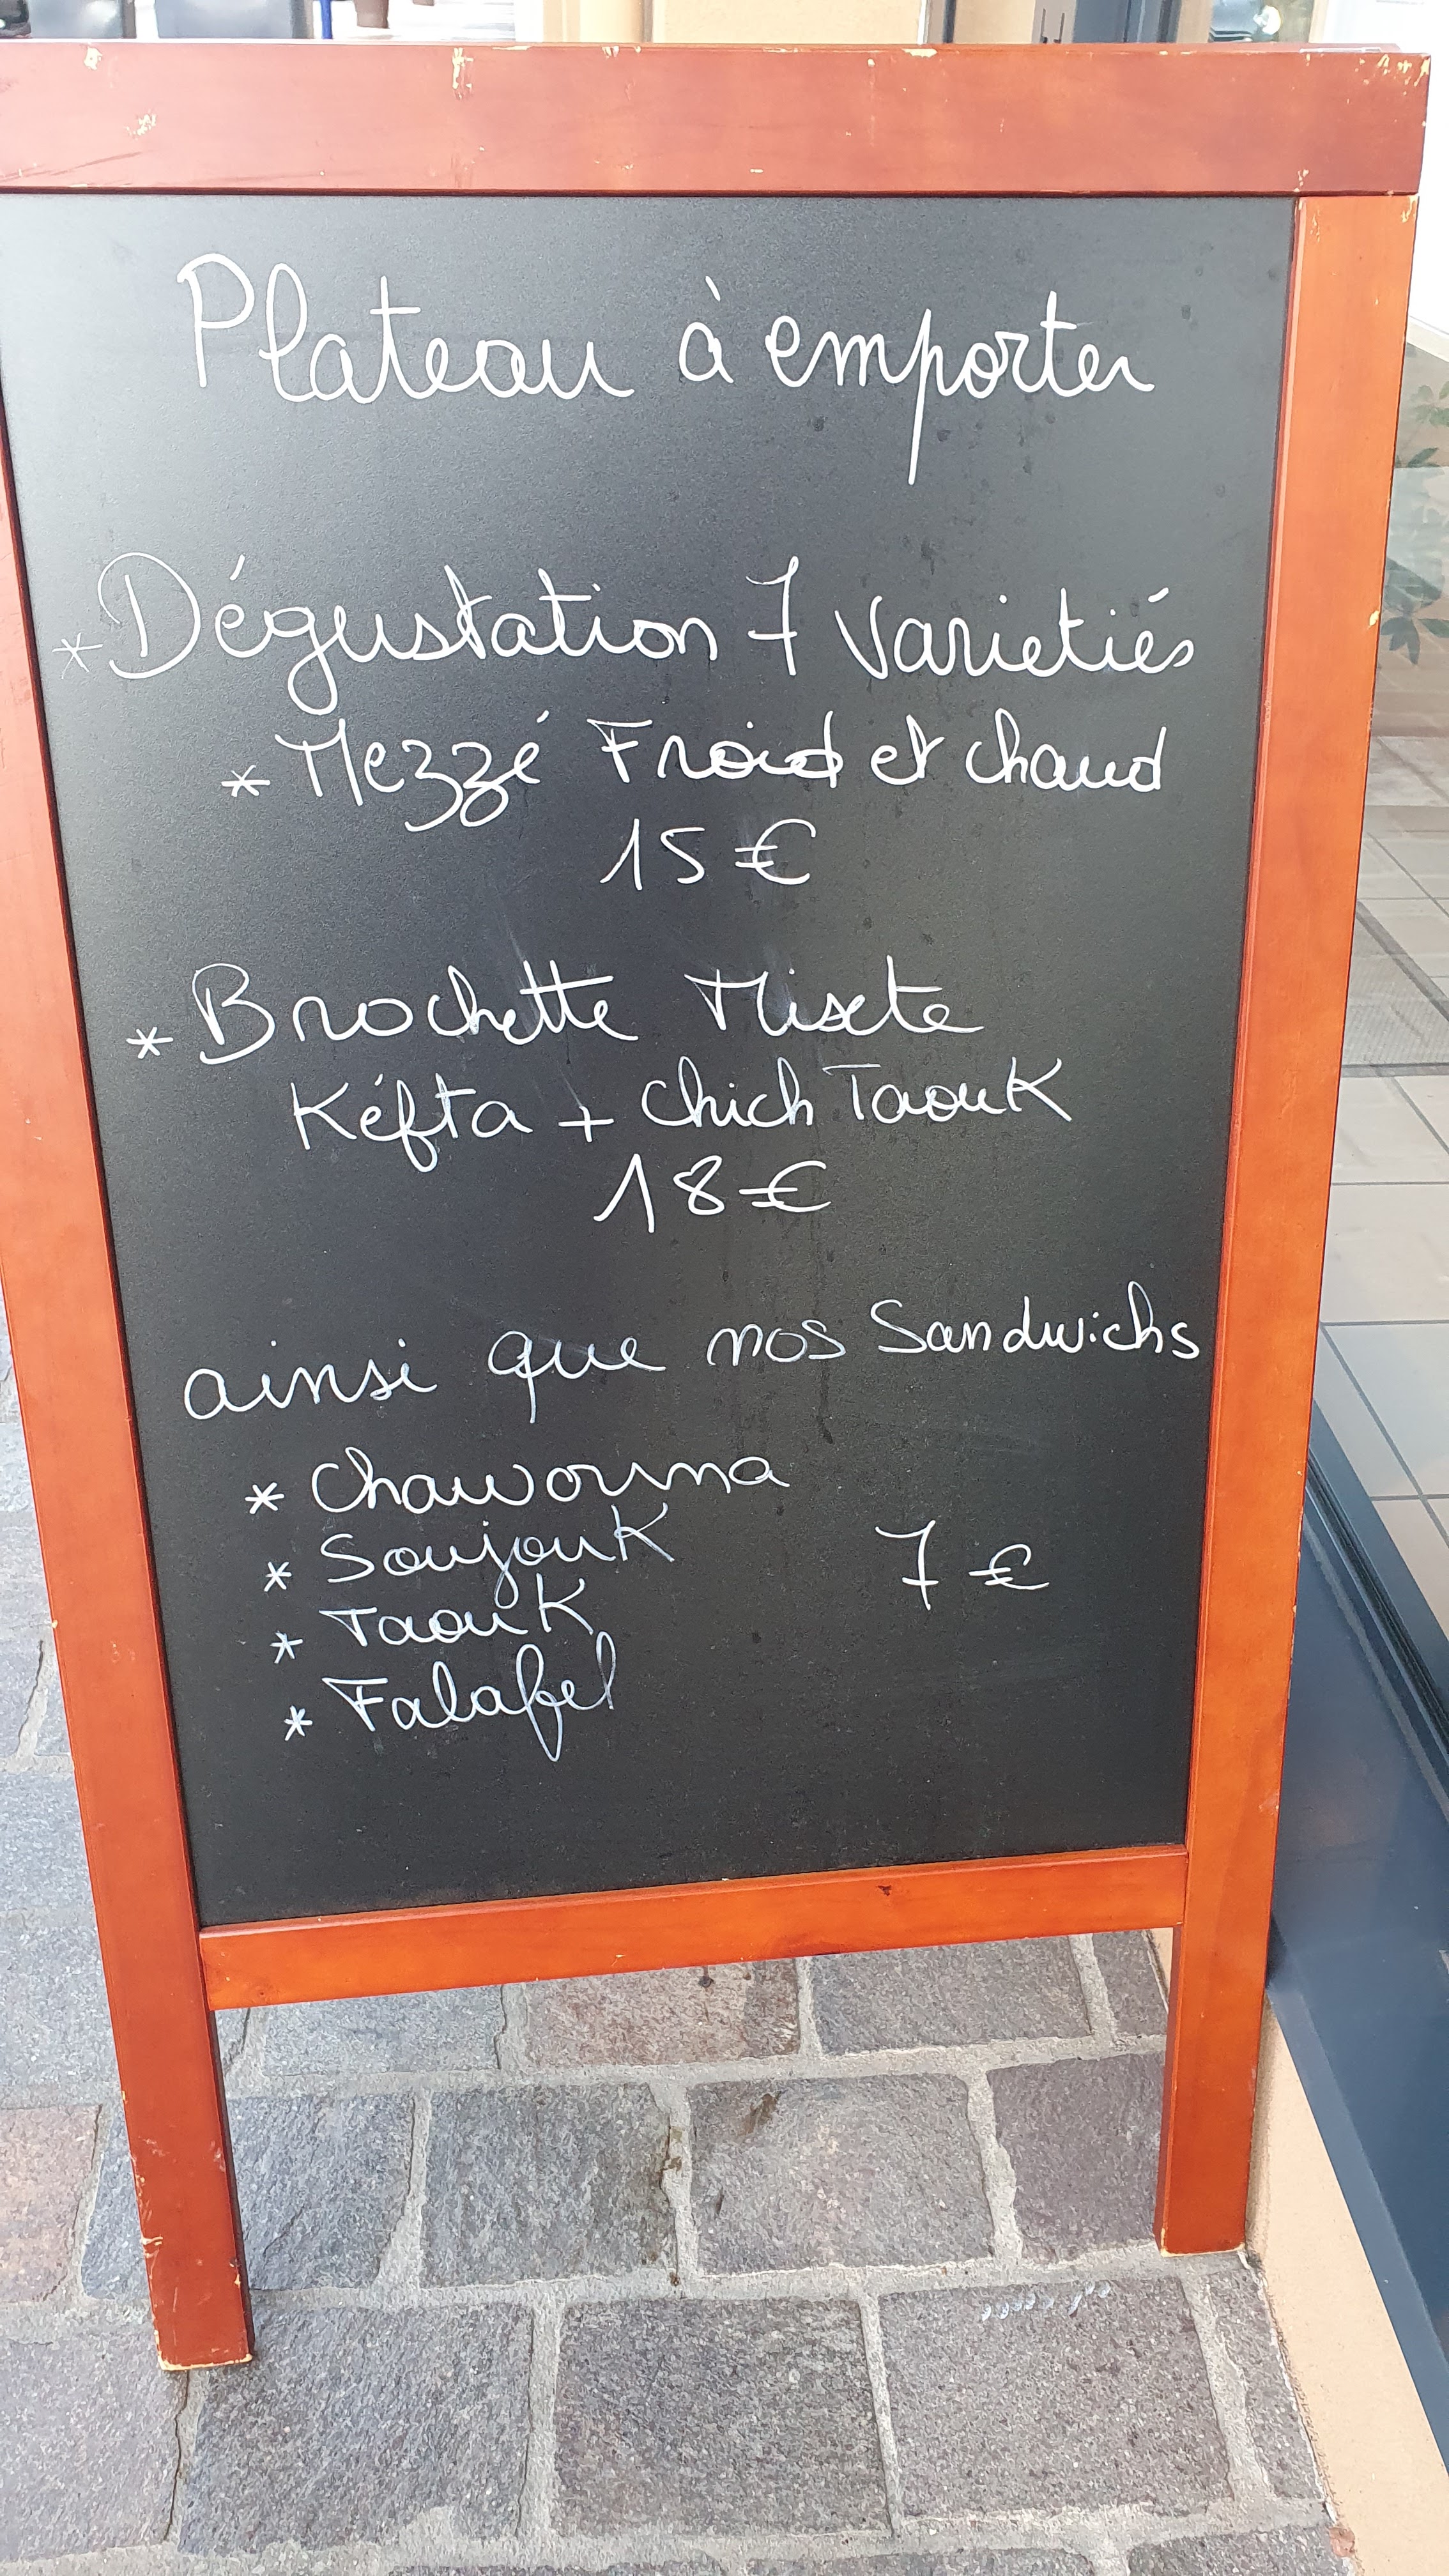 Plateau à emporter
* Dégustation 7 varietiés
* Mezzé Froid et chaud
15 €
* Brochette Mixte
Kéfta + chich Taouk
18 €
ainsi que nos Sandwichs
* Chawourma
* Soujouk
7 €
* Taouk
* Falafel